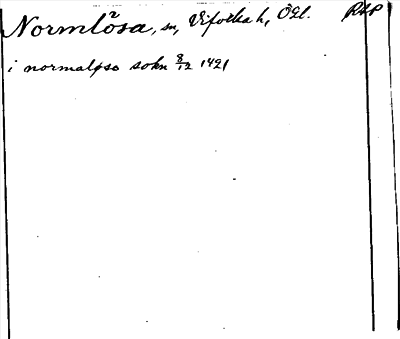 Normlösa, sn, Vifolka h, Ögl. RAP
i normaløso sokn 8/12 1421